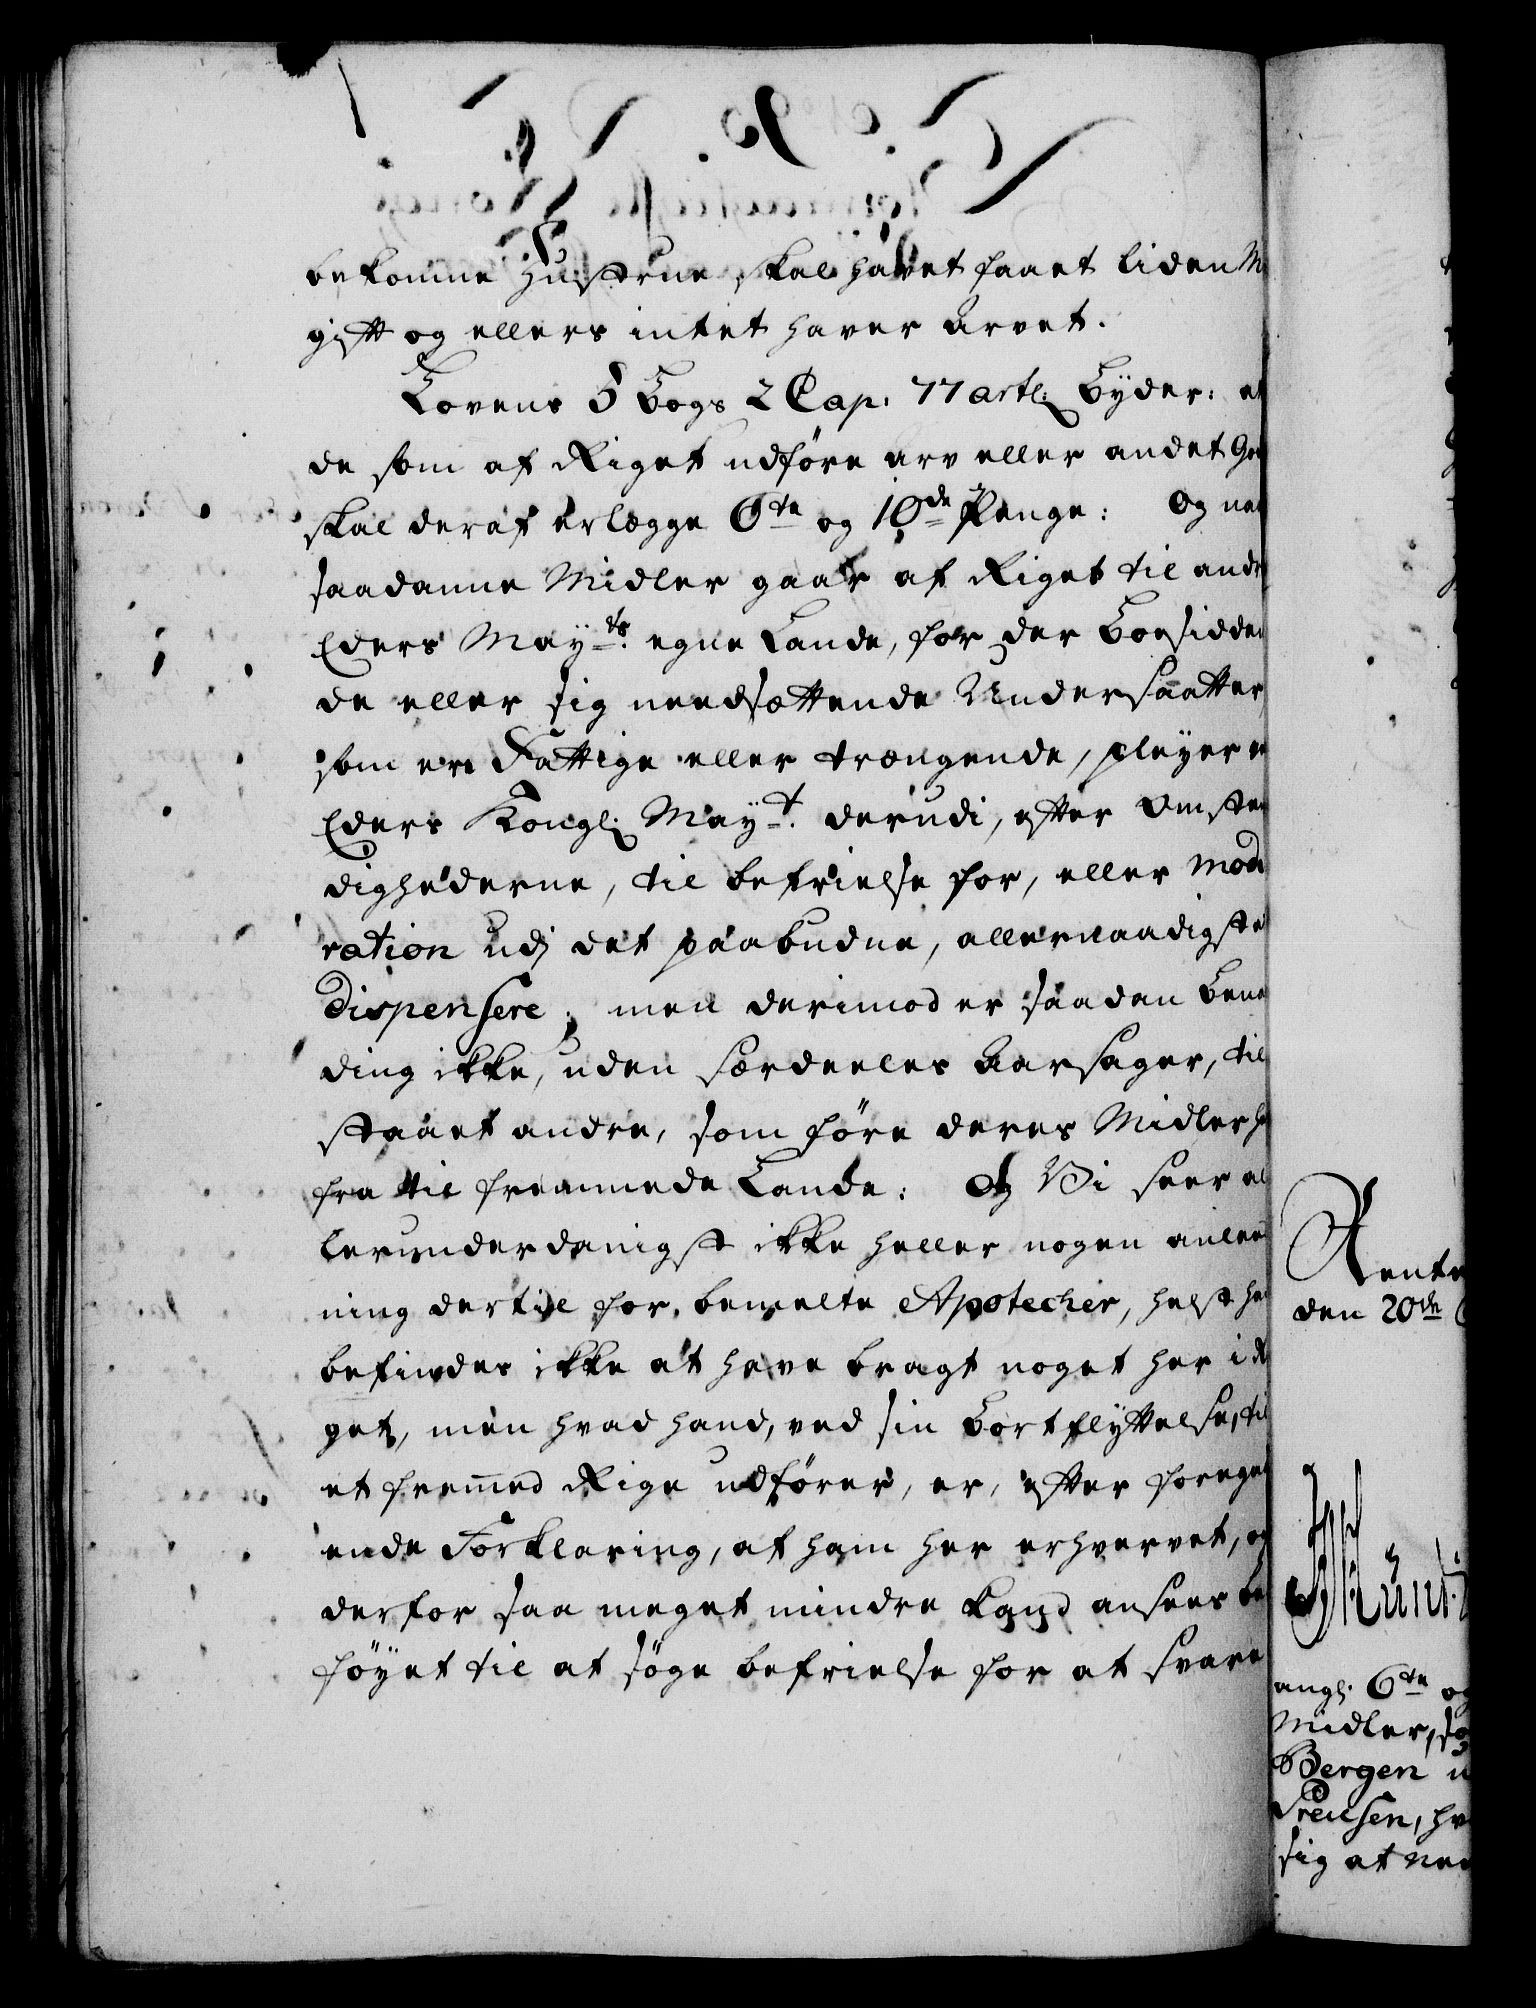 bekomme Hustrue skal havet faaet liden M
gift og ellers intet haver arvet.
Lovens 5 Bogs 2 Cap. 77 artl: Byder: at
de som af Riget udföre arv eller andet God
skal deraf erlægge 6te og 10de Penge: Og naar
saadanne Midler gaar af Riget til andre
Eders Mayts. egne Lande, for der Boesidden
de eller sig needsættende Undersaatter,
som ere Fattige eller trængende, pleyer
Eders Kongl: Mayt. derudi, efter Omsten
dighederne, til befrielse for, eller mode
ration udj det paabudne, allernaadigste
dispensere; men derimod er saadan Benaa
ding ikke, uden særdeeles Aarsager, til
staaet andre, som före deres Midler he
fra til fremmede Lande: Og Vi seer al
lerunderdanigst ikke heller nogen anleed
ning dertil for bemelte Apotecher, helst ha
befindes ikke at have bragt noget her i R
get, men hvad hand, ved sin Bortflyttelse, til
et fremmed Rige udförer, er, efter foregaa
ende Forklaring, af ham her erhvervet, og
derfor saa meget mindre kand ansees be
föyet til at söge befrielse for at svare
Rente
den 20de
angl. 6te og
Midler, so
Bergen u
Preusen, hv
sig at need